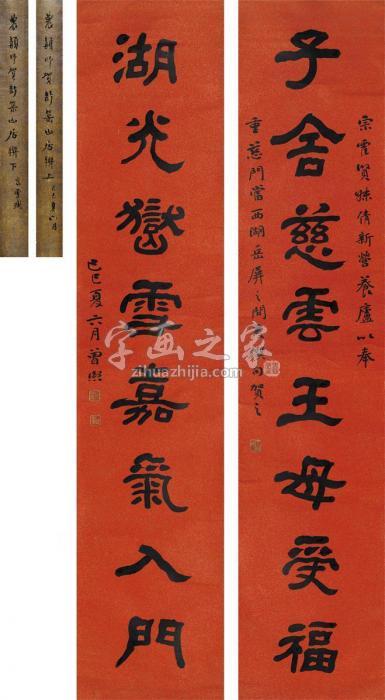 宗霍賢妹倩新營養廬以奉
子舍慈雲王母受福
重慈門當西湖岳屏之間句賀之
湖光嶽雪嘉氣入門
己巳夏六月曾熙
農髯師賀新築山居聯上
農髯師賀新築山居聯下
字画之家
zihuazhijia.com